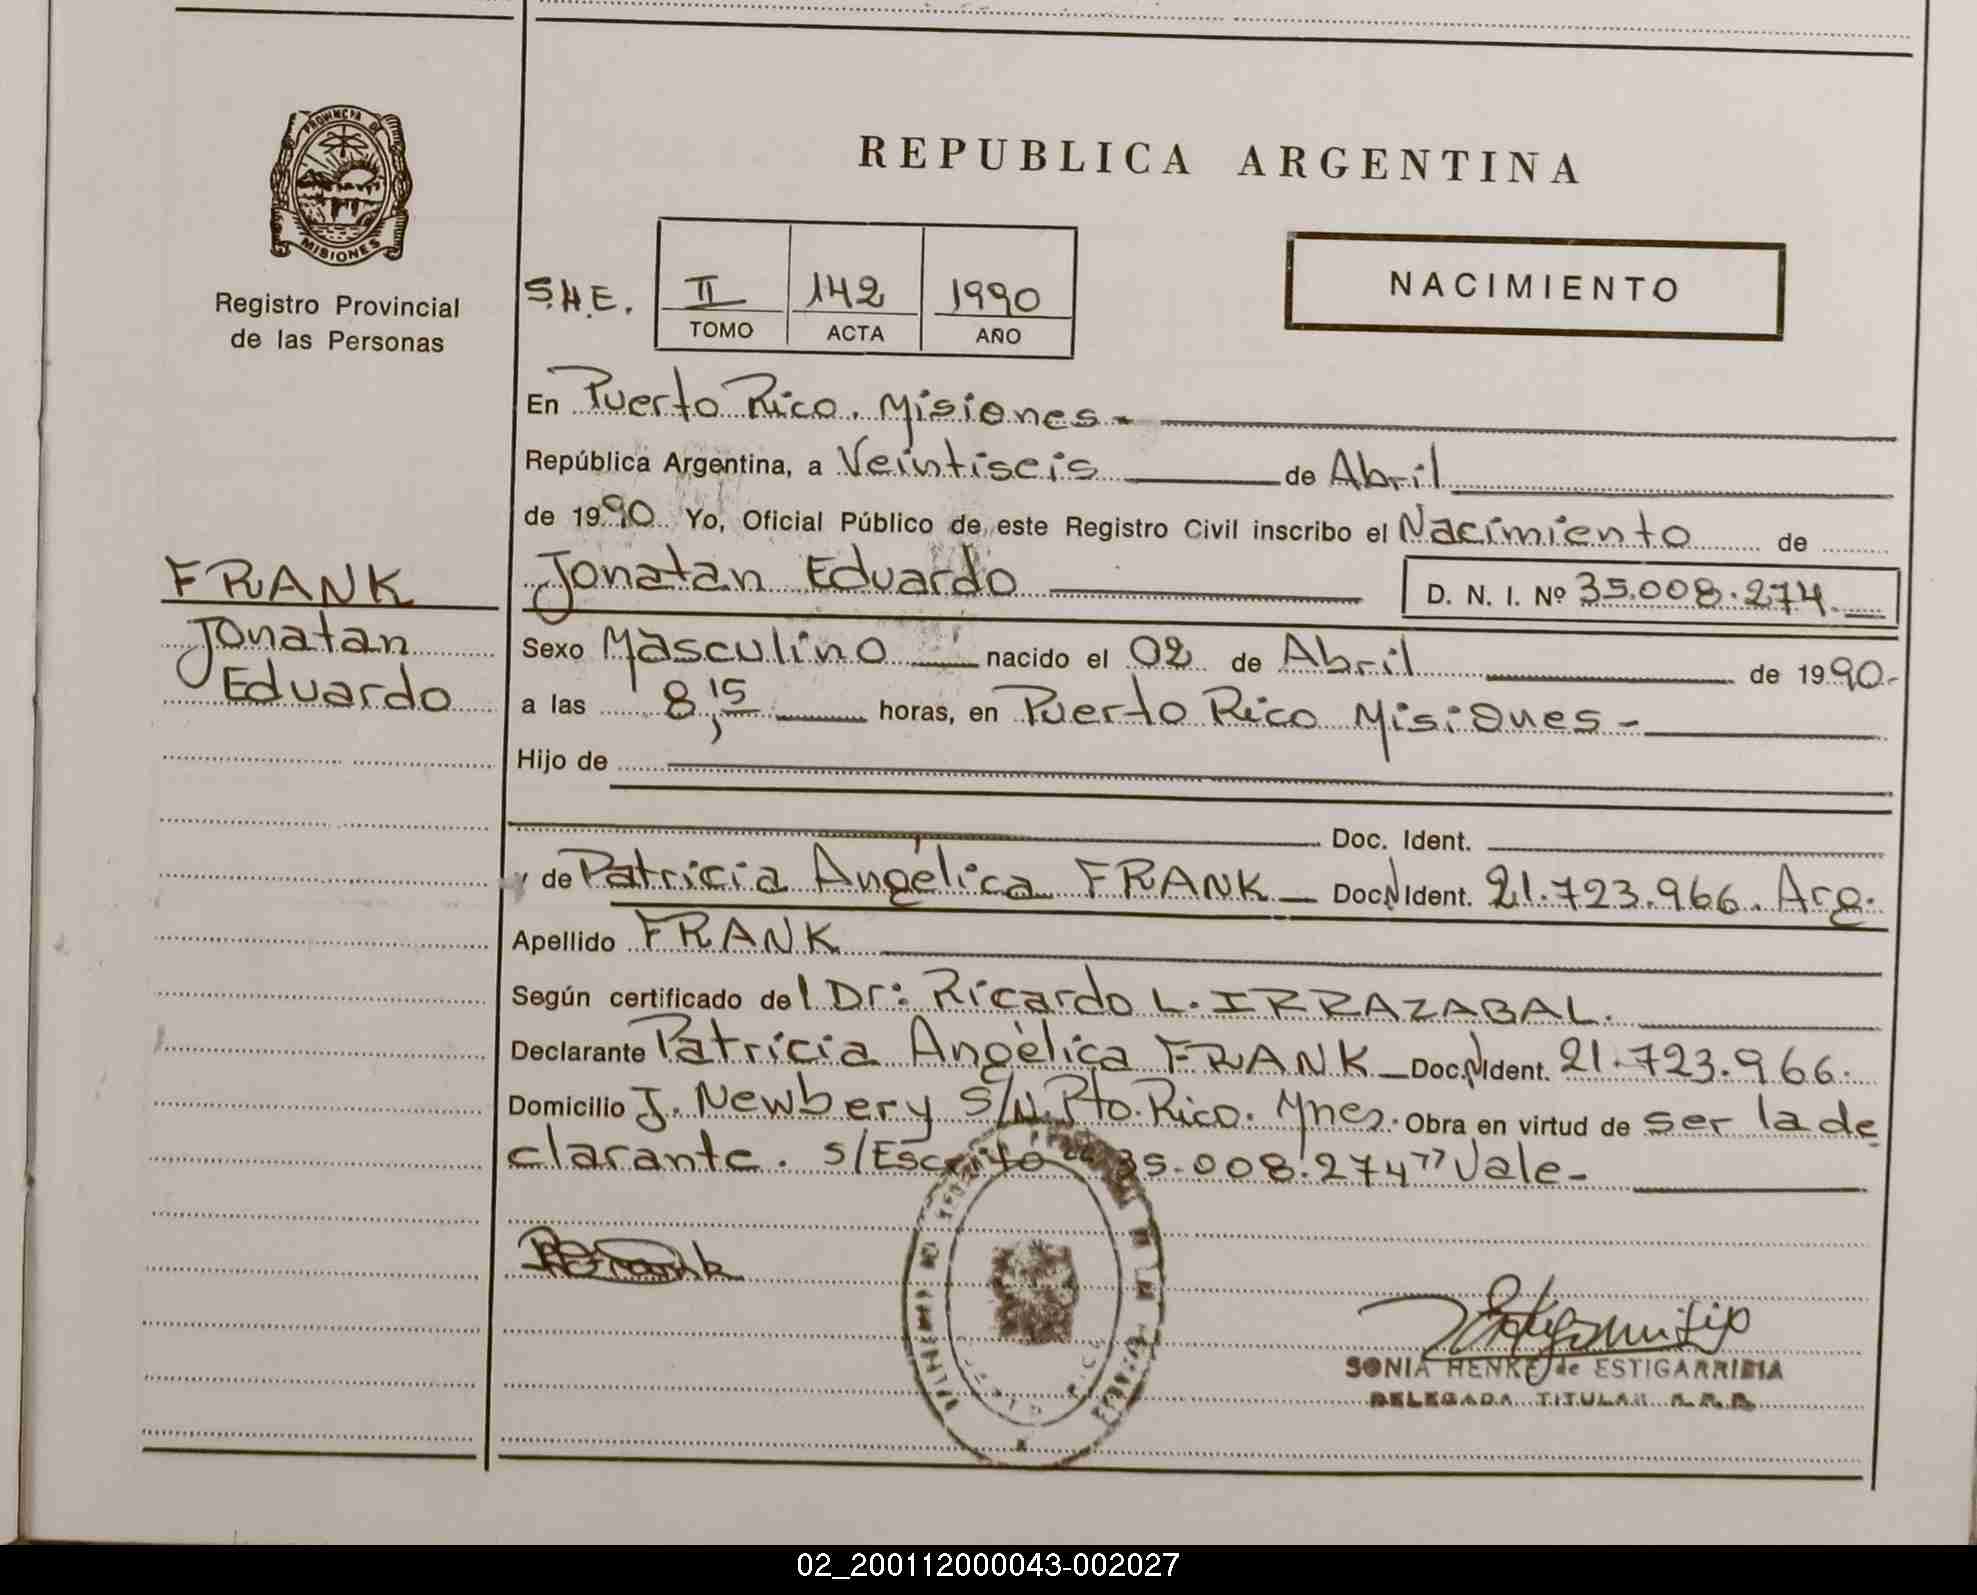 PROVINCIA DE
MISIONES
Registro Provincial
de las Personas
FRANK
Jonatan
Eduardo
REPUBLICA ARGENTINA
S.H.E.
II 142 1990
TOMO ACTA AÑO
NACIMIENTO
En Puerto Rico. Misiones-
República Argentina, a Veintiseis de Abril
de 1990 Yo, Oficial Público de este Registro Civil inscribo el Nacimiento de
Jonatan Eduardo D. N. I. Nº 35.008.274.
Sexo Masculino nacido el 02 de Abril de 1990-
a las 8,15 horas, en Puerto Rico Misiones-
Hijo de
Doc. Ident.
y de Patricia Angélica FRANK Doc. N Ident. 21.723.966. Arg.
Apellido FRANK
Según certificado del Dr: Ricardo L. IRRAZABAL.
Declarante Patricia Angélica FRANK Doc. N Ident. 21.723.966.
Domicilio J. Newbery S/N. Pto. Rico. Mnes. Obra en virtud de ser la de
clarante. s/Escrito "35.008.274" Vale-
SONIA HENKE de ESTIGARRIBIA
DELEGADA TITULAR
02_200112000043-002027